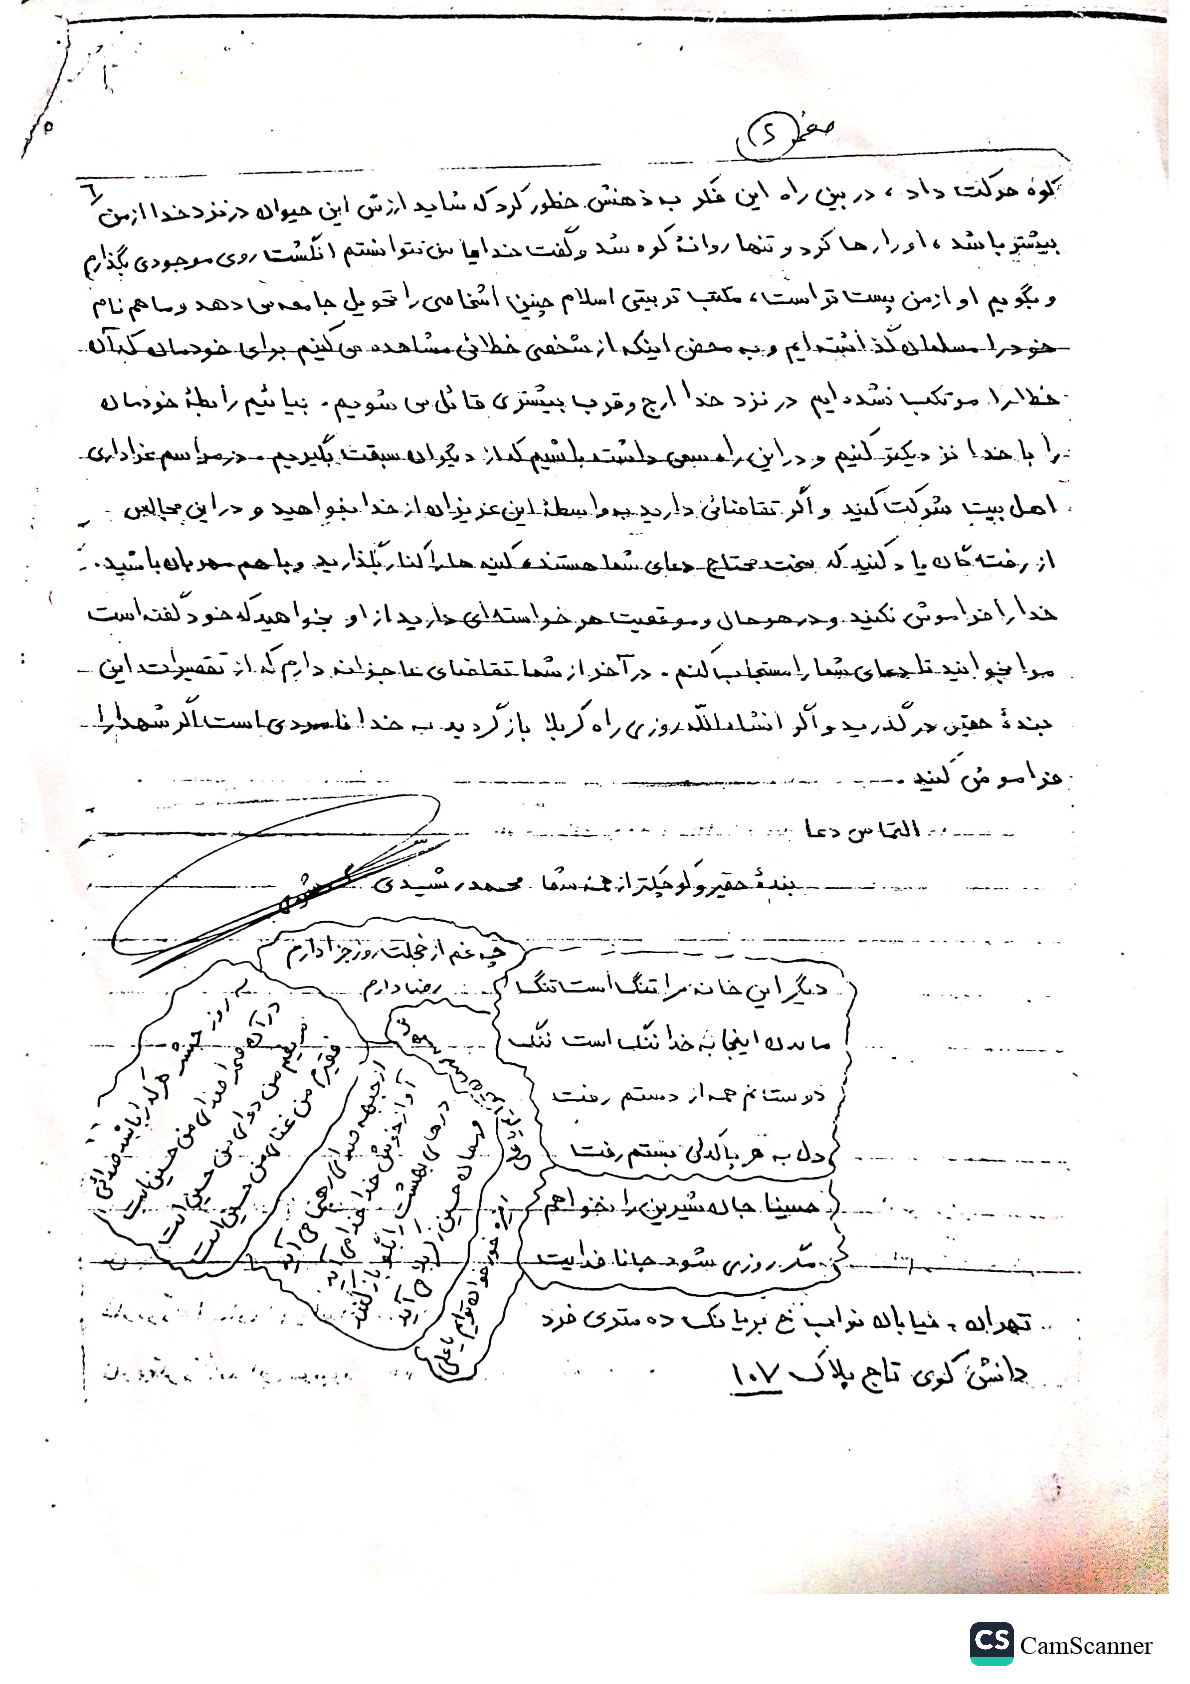 صفحه ۲
کوه حرکت داد ، در بین راه این فکر به ذهنش خطور کرد که شاید ارزش این حیوان در نزد خدا از من
بیشتر باشد ، او را رها کرد و تنها روانهٔ کوه شد و گفت خدایا من نتوانستم انگشت روی موجودی بگذارم
و بگویم او از من پست تر است ، مکتب تربیتی اسلام چنین اشخاصی را تحویل جامعه می دهد و ما هم نام
خود را مسلمان گذاشته ایم و به محض اینکه از شخصی خطائی مشاهده می کنیم برای خودمان که آن
خطا را مرتکب نشده ایم در نزد خدا ارج و قرب بیشتری قائل می شویم . بیائیم رابطهٔ خودمان
را با خدا نزدیکتر کنیم و در این راه سعی داشته باشیم که از دیگران سبقت بگیریم . در مراسم عزاداری
اهل بیت شرکت کنید و اگر تقاضائی دارید به واسطهٔ این عزیزان از خدا بخواهید و در این مجالس
از رفته گان یاد کنید که سخت محتاج دعای شما هستند ، کینه ها را کنار بگذارید و با هم مهربان باشید .
خدا را فراموش نکنید و در هر حال و موقعیت هر خواسته ای دارید از او بخواهید که خود گفته است
مرا بخوانید تا دعای شما را مستجاب کنم . در آخر از شما تقاضای عاجزانه دارم که از تقصیرات این
بندهٔ حقیر در گذرید و اگر انشاءالله روزی راه کربلا باز گردید به خدا نامردی است اگر شهدا را
فراموش کنید .
التماس دعا
بندهٔ حقیر و کوچکتر از همهٔ شما محمد رشیدی
چه غم از خجلت روز جزا دارم
رضا دارم
دیگر این خانه مرا تنگ است تنگ
ماندن اینجا به خدا ننگ است ننگ
دوستانم همه از دستم رفت
دل به هر باکدلی بستم رفت
حسینا جان شیرین را نخواهم
مگر روزی شود جانا فدایت
به روز حشر هرکه را باشد صدائی
در آن صحرا صدای من حسین است
مریضم من دوای من حسین است
فقیرم من غنای من حسین است
از جبهه صدای رهنما می آید
آواز خوش خدا خدا می آید
درهای بهشت را بگو باز کنند
مهمان حسین کربلا می آید
تهران ، خیابان نواب خ بریانک ده متری فرد
دانش کوی تاج پلاک ۱۰۷
CS CamScanner